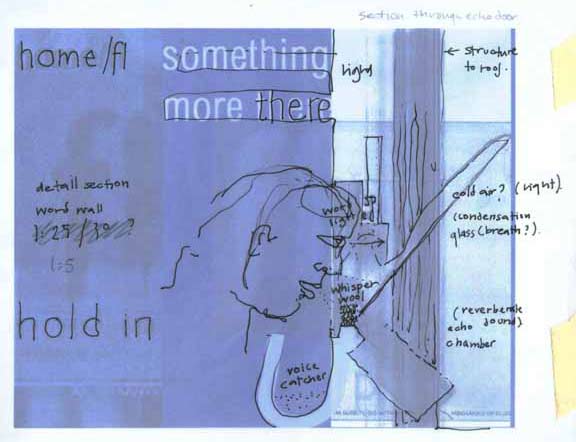 section through echo door
home/fl
something
more there
light
← structure
to roof.
detail section
word wall
1:25 / 30 ?
1:5
word
light
cold air? (light).
(condensation
glass (breath?).
whisper
wool
hold in
(reverberate
echo sound)
chamber
voice
catcher